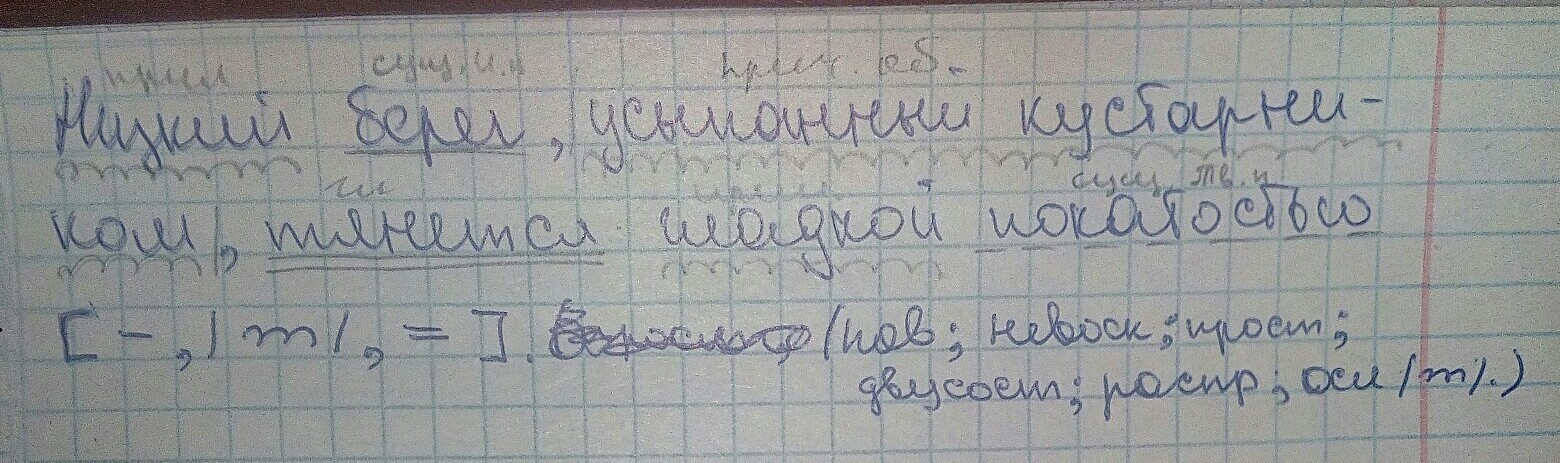 прил сущ. и.п прич. об.
Низкий берег, усыпанный кустарни-
гл прил сущ тв.п
ком/, тянется гладкой покатостью
[ - , / m / , = ] . (пов; невоск; прост;
двусост; распр; осл /m/.)